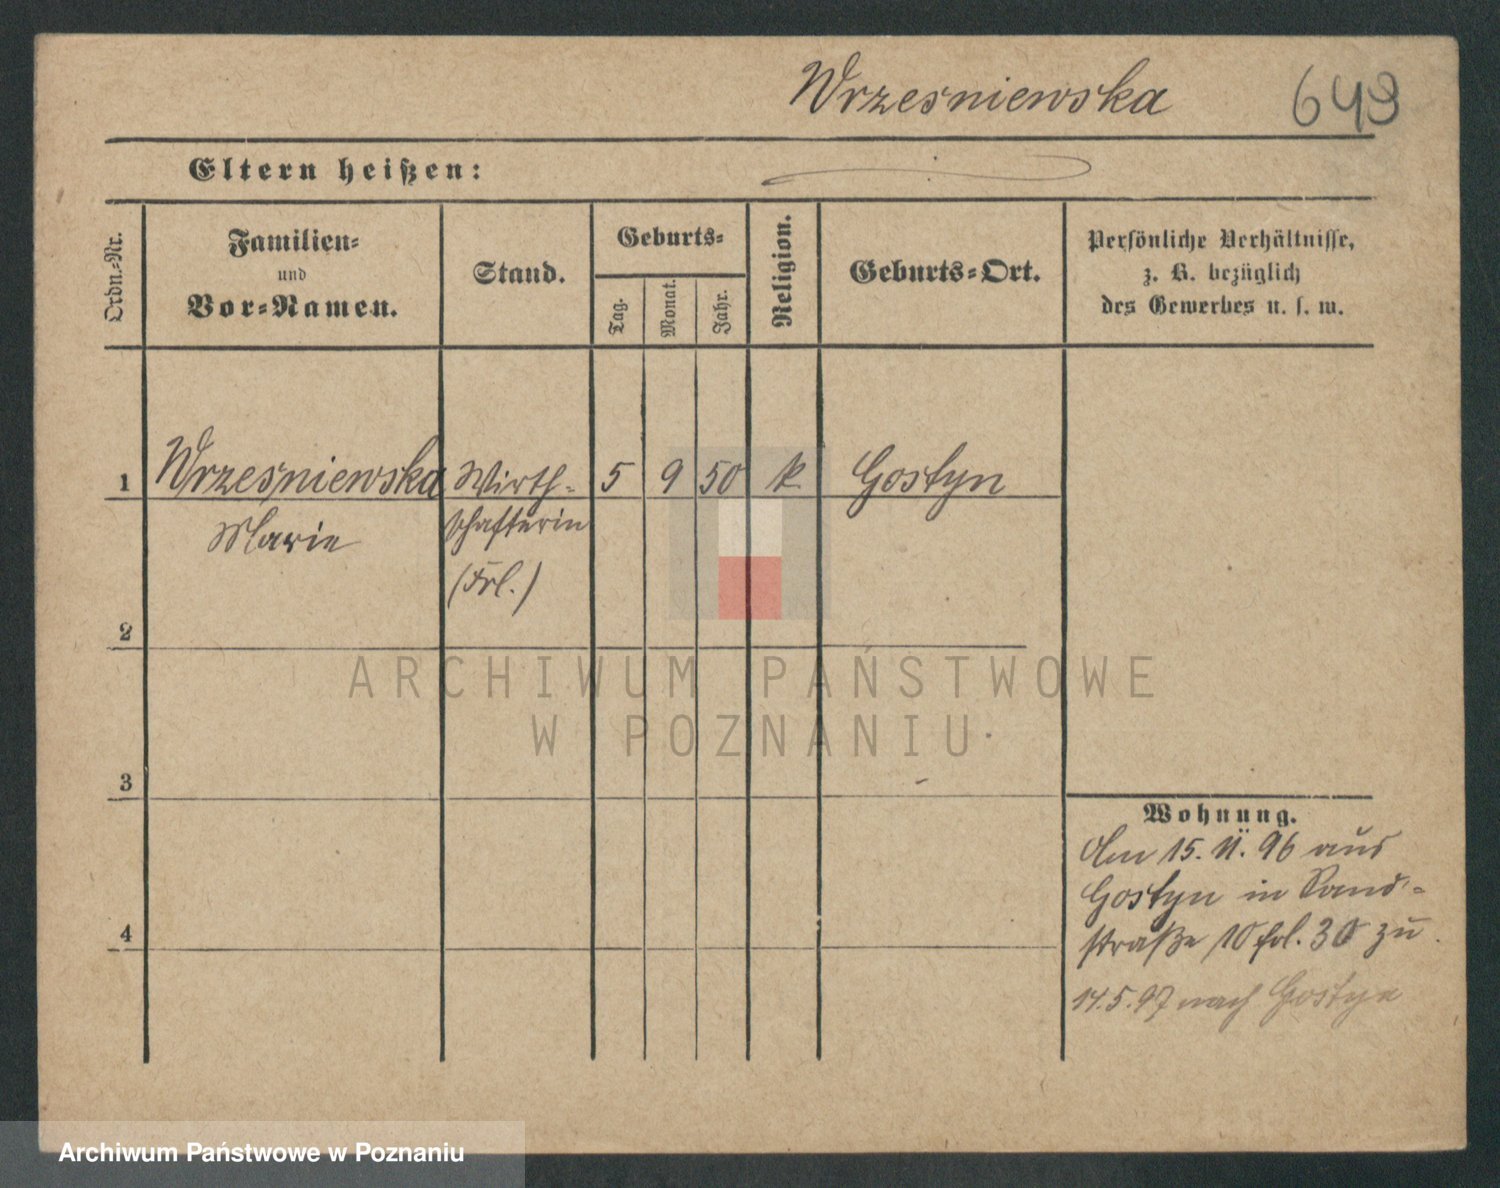 Wrzesniewska 649
Eltern heißen:
Ordn.-Nr.
Familien-
und
Vor-Namen.
Stand.
Geburts-
Tag.
Monat.
Jahr.
Religion.
Geburts-Ort.
Persönliche Verhältnisse,
z. B. bezüglich
des Gewerbes u. s. w.
1 Wrzesniewska Wirth- 5 9 50 k. Gostyn
Marie schafterin
(Frl.)
2
ARCHIWUM PAŃSTWOWE
W POZNANIU
3
Wohnung.
Am 15. 11. 96 aus
Gostyn in
straße 10 fol. 30 zu
4
14.5.97 nach Gostyn
Archiwum Państwowe w Poznaniu